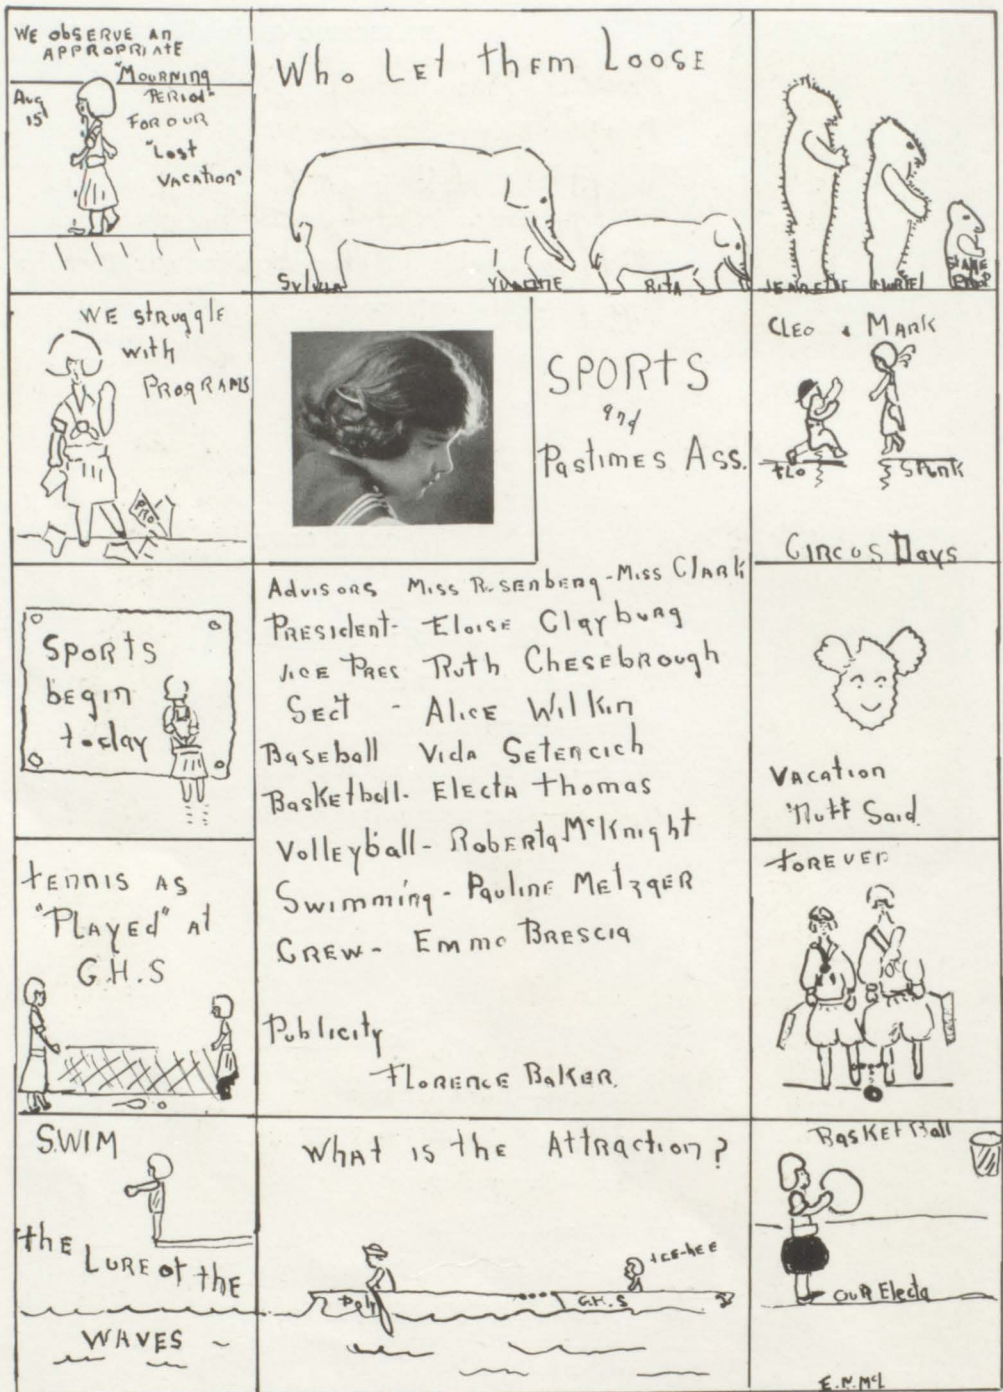 WE OBSERVE AN
APPROPRIATE
"MOURNING
PERIOD"
Aug
15
FOR OUR
"Lost
VACATION"
Who Let them Loose
Sylvia
YVONNE
RITA
JEANETTE
MURIEL
WE struggle
with
PROGRAMS
PRO
SPORTS
and
Pastimes Ass.
CLEO & MARK
FLO
SPUNK
CIRCUS Days
Sports
begin
today
Advisors Miss Rosenberg - Miss Clark
PRESIdent - Eloise Clayburg
VICE PRES Ruth Chesebrough
Sec't - Alice Wilkin
Baseball Vida Setencich
Basketball - Electa Thomas
Volleyball - Roberta McKnight
Swimming - Pauline Metzger
CREW - Emma BRESCIA
Publicity
FLORENCE BAKER.
VACATION
'Nuff Said.
tennis AS
"PLAYED" At
G.H.S
FOREVER
SWIM
the LURE of the
WAVES
What is the Attraction?
tee-hee
G.H.S
BASKETBall
OUR Electa
E.N.McL